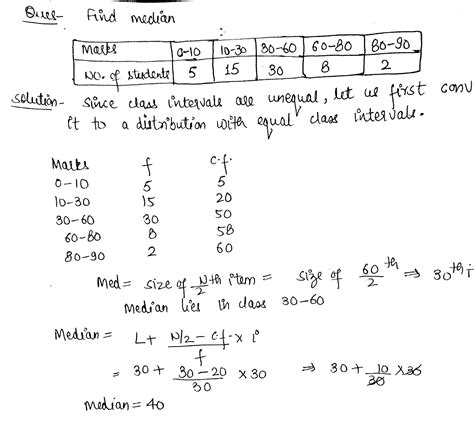 Ques- Find median
Marks 0-10 10-30 30-60 60-80 80-90
No. of students 5 15 30 8 2
Solution- Since class intervals are unequal, let us first conv
it to a distribution with equal class intervals.
Marks f c.f.
0-10 5 5
10-30 15 20
30-60 30 50
60-80 8 58
80-90 2 60
Med = size of N/2 th item = size of 60/2 th ⇒ 30th i
Median lies in class 30-60
Median = L + (N/2 - c.f.)/f × i
= 30 + (30-20)/30 × 30 ⇒ 30 + 10/30 × 30
Median = 40